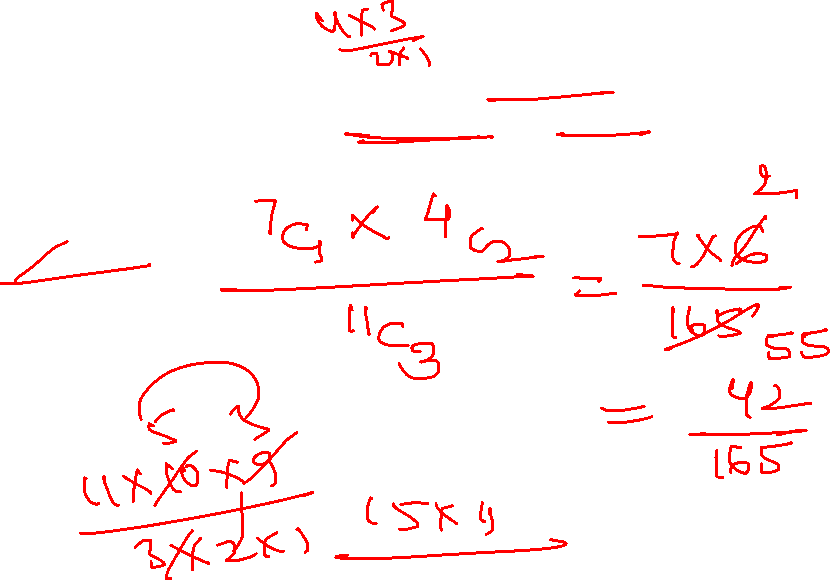 4×3
2×1
7C1 × 4C2 = 7×6 2
11C3 165 55
= 42
165
5 3
11×10×9
3×2×1 15×11